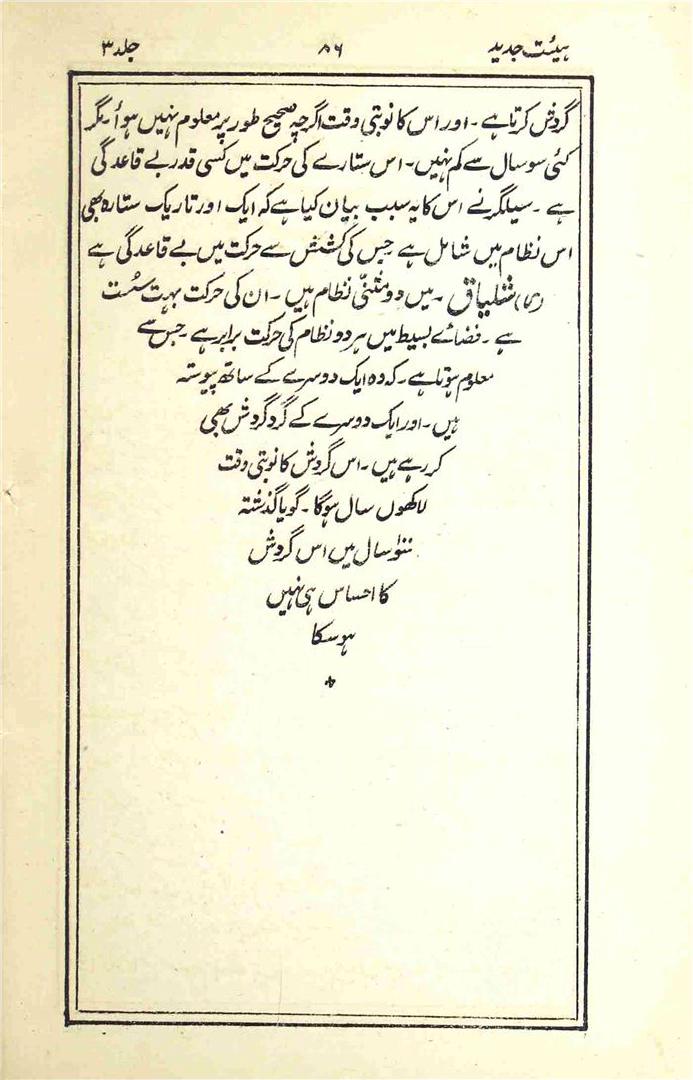 ہیئت جدید ۸۶ جلد ۳
گردش کرتا ہے ۔ اور اس کا نوبتی وقت اگرچہ صحیح طور پر معلوم نہیں ہوا ۔ مگر
کئی سو سال سے کم نہیں ۔ اس ستارے کی حرکت میں کسی قدر بے قاعدگی
ہے ۔ سیلگر نے اس کا یہ سبب بیان کیا ہے کہ ایک اور تاریک ستارہ بھی
اس نظام میں شامل ہے جس کی کشش سے حرکت میں بے قاعدگی ہے
شلیاق ۔ میں دو مثنیٰ نظام ہیں ۔ ان کی حرکت بہت سُست
ہے ۔ فضائے بسیط میں ہر دو نظام کی حرکت برابر ہے جس سے
معلوم ہوتا ہے ۔ کہ وہ ایک دوسرے کے ساتھ پیوستہ
ہیں ۔ اور ایک دوسرے کے گرد گردش بھی
کر رہے ہیں ۔ اس گردش کا نوبتی وقت
لاکھوں سال ہوگا ۔ گویا گذشتہ
سال میں اس گردش
کا احساس ہی نہیں
ہو سکا